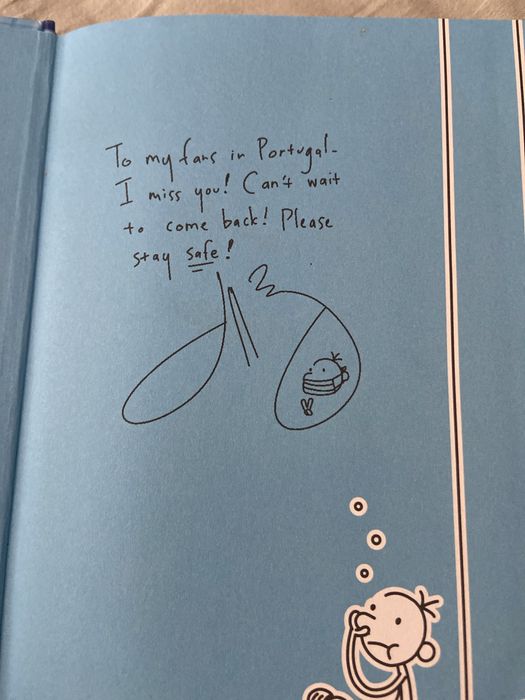 To my fans in Portugal-
I miss you! Can't wait
to come back! Please
stay safe!